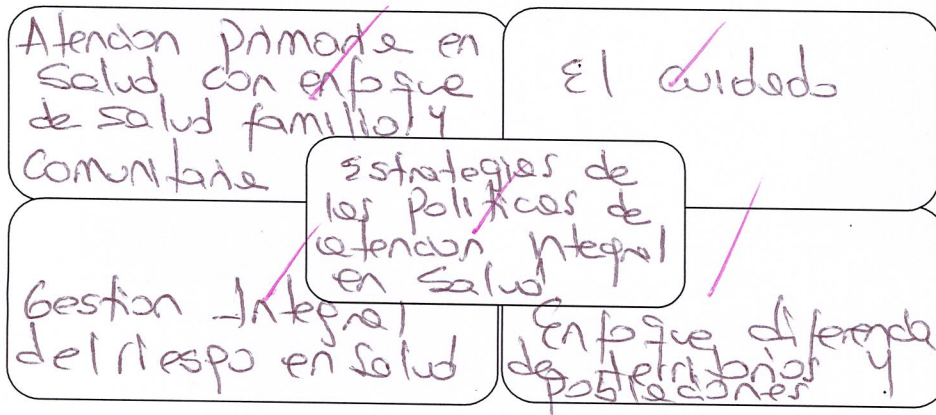 Atencion primaria en
Salud con enfoque
de salud familial y
Comunitaria
El cuidado
Estrategias de
las politicas de
atencion integral
en Salud
Gestion Integral
del riesgo en Salud
Enfoque diferencia
de territorios y
poblaciones